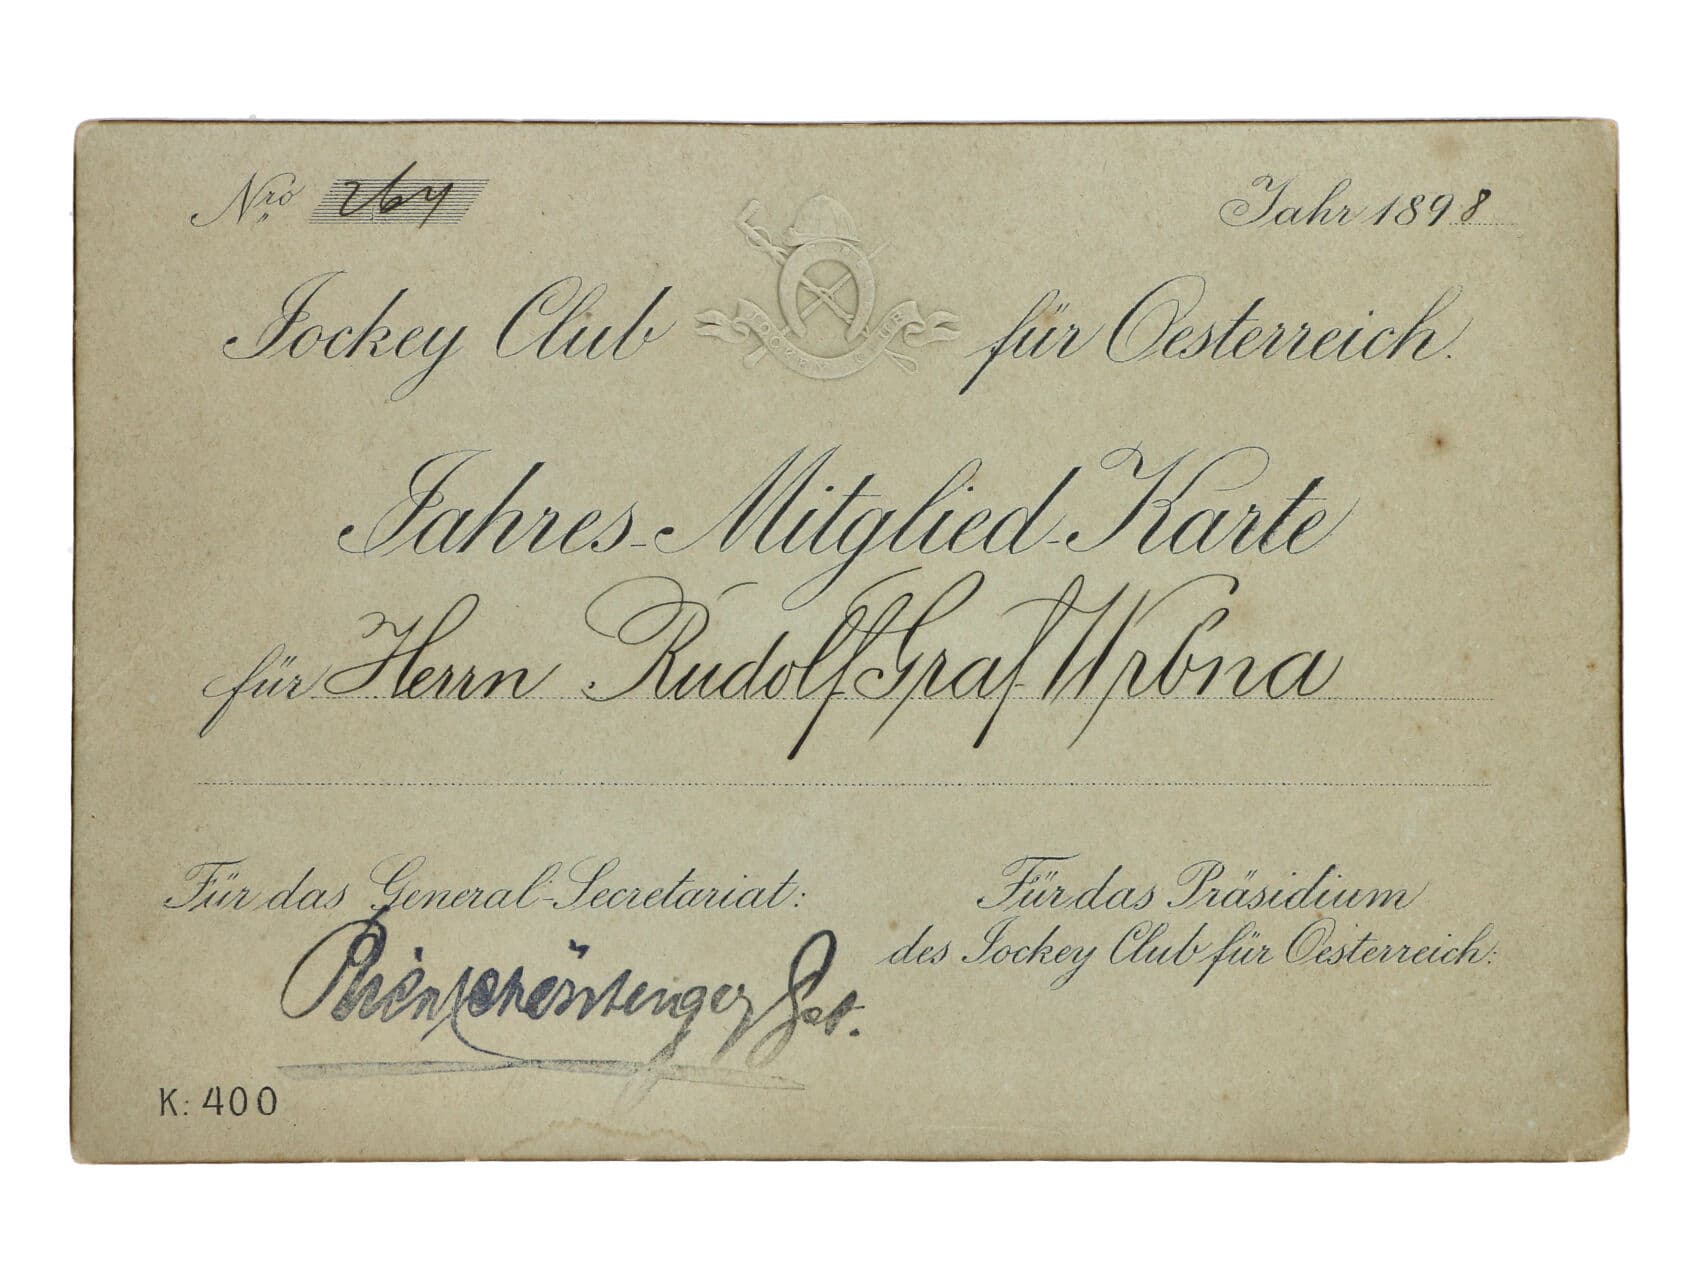 Nro 264
Jahr 1898
JOCKEY CLUB
Jockey Club für Oesterreich.
Jahres-Mitglied-Karte
für Herrn Rudolf Graf Wrbna
Für das General-Secretariat:
Für das Präsidium
des Jockey Club für Oesterreich:
K: 400